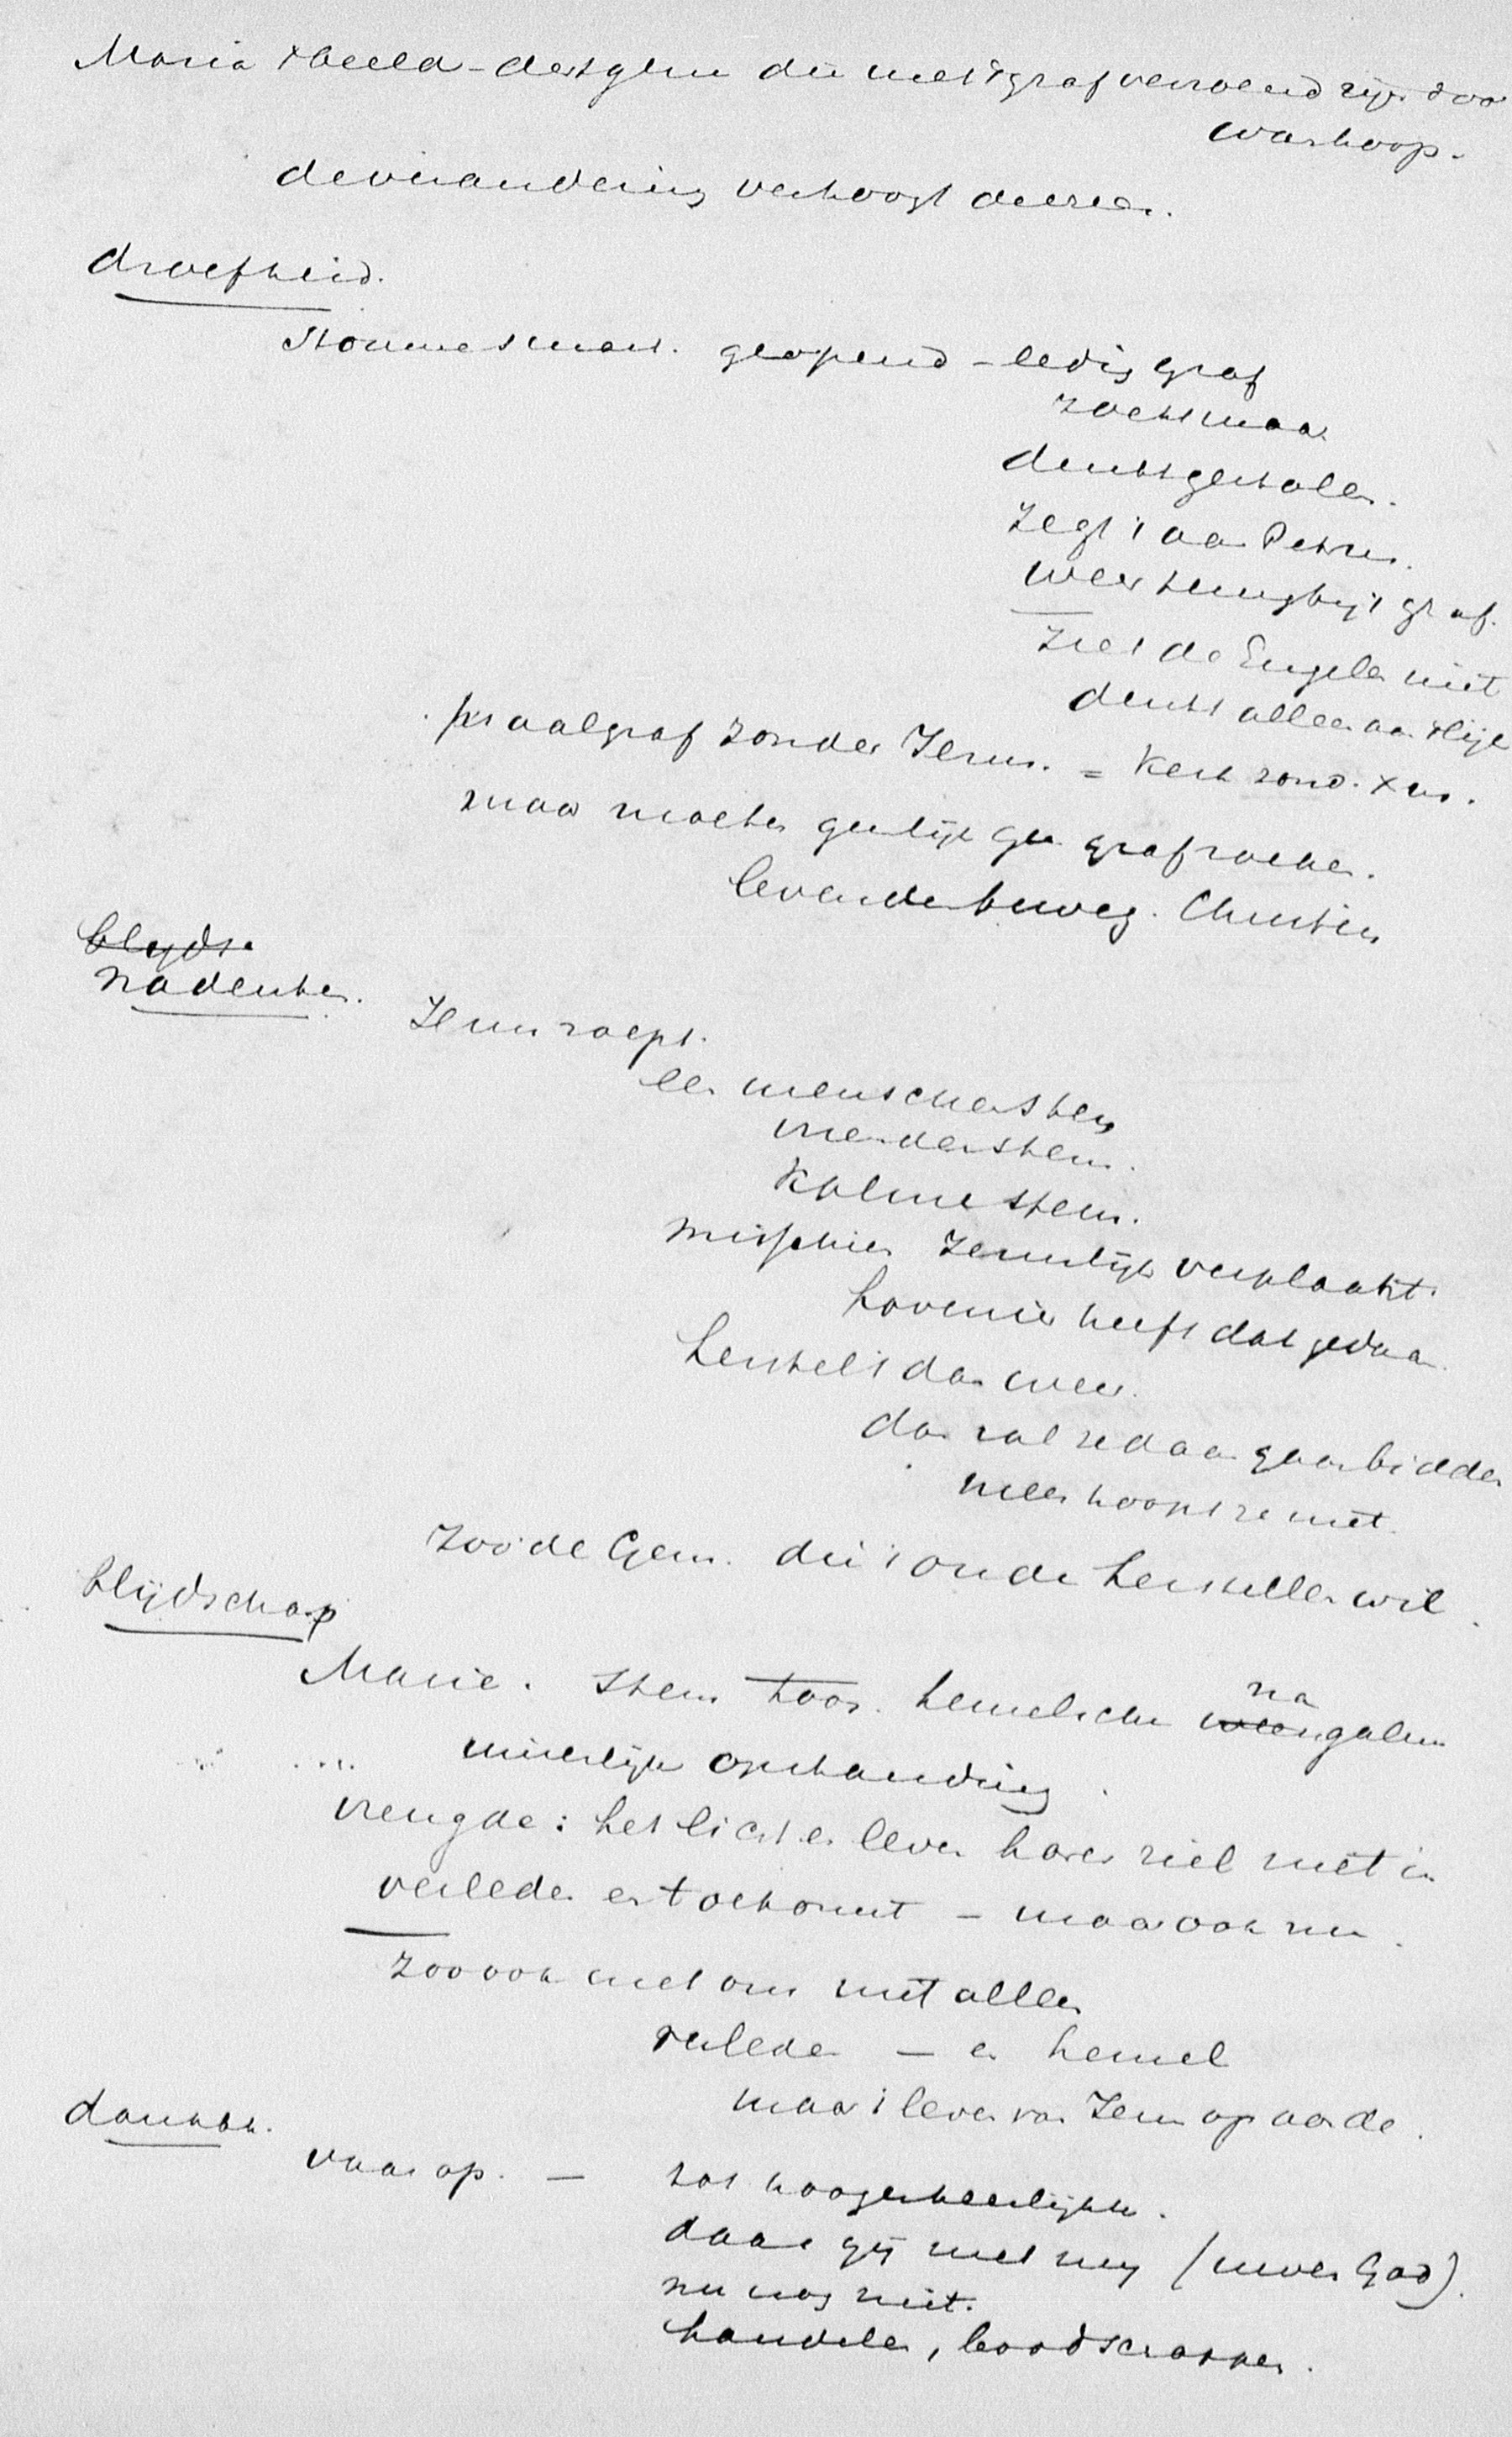 Maria 't beeld - desgenen die met 't graf verzoend zijn door
wanhoop.
de verandering verhoogt deeren.
droefheid.
Stomme smart. geopend - ledig graf
zoekt maar
denkt gestolen.
zegt 't aan Petrus.
weer terug bij 't graf.
ziet de Engelen niet
denkt alleen aan 't lijk
praalgraf zonder Jezus. = Kerk zond. Xus.
maar moeten geen lijk geen graf zoeken.
levende beweg. Christus
blyds.
nadenken.
Jezus roept.
een menschenstem
vriendenstem.
Kalme stem.
misschien Jezus lijk verplaatst.
hovenier heeft dat gedaan.
herstel 't dan weer.
dan zal ze daar gaan bidden
meer hoopt ze niet.
Zoo de Gem. die 't oude herstellen wil.
blijdschap
Marie. Stem toon. hemelsche na
galm
innerlijke opstanding.
vreugde: het licht en leven harer ziel niet in
verleden en toekomst - maar ook nu.
Zoo ook met ons niet alleen
verleden - en hemel
maar 't leven van Jezus op aarde.
dankbh.
vaar op. - tot hooger heerlijkh.
daar gij met mij (uwen God).
nu nog niet.
handelen, boodschappen.